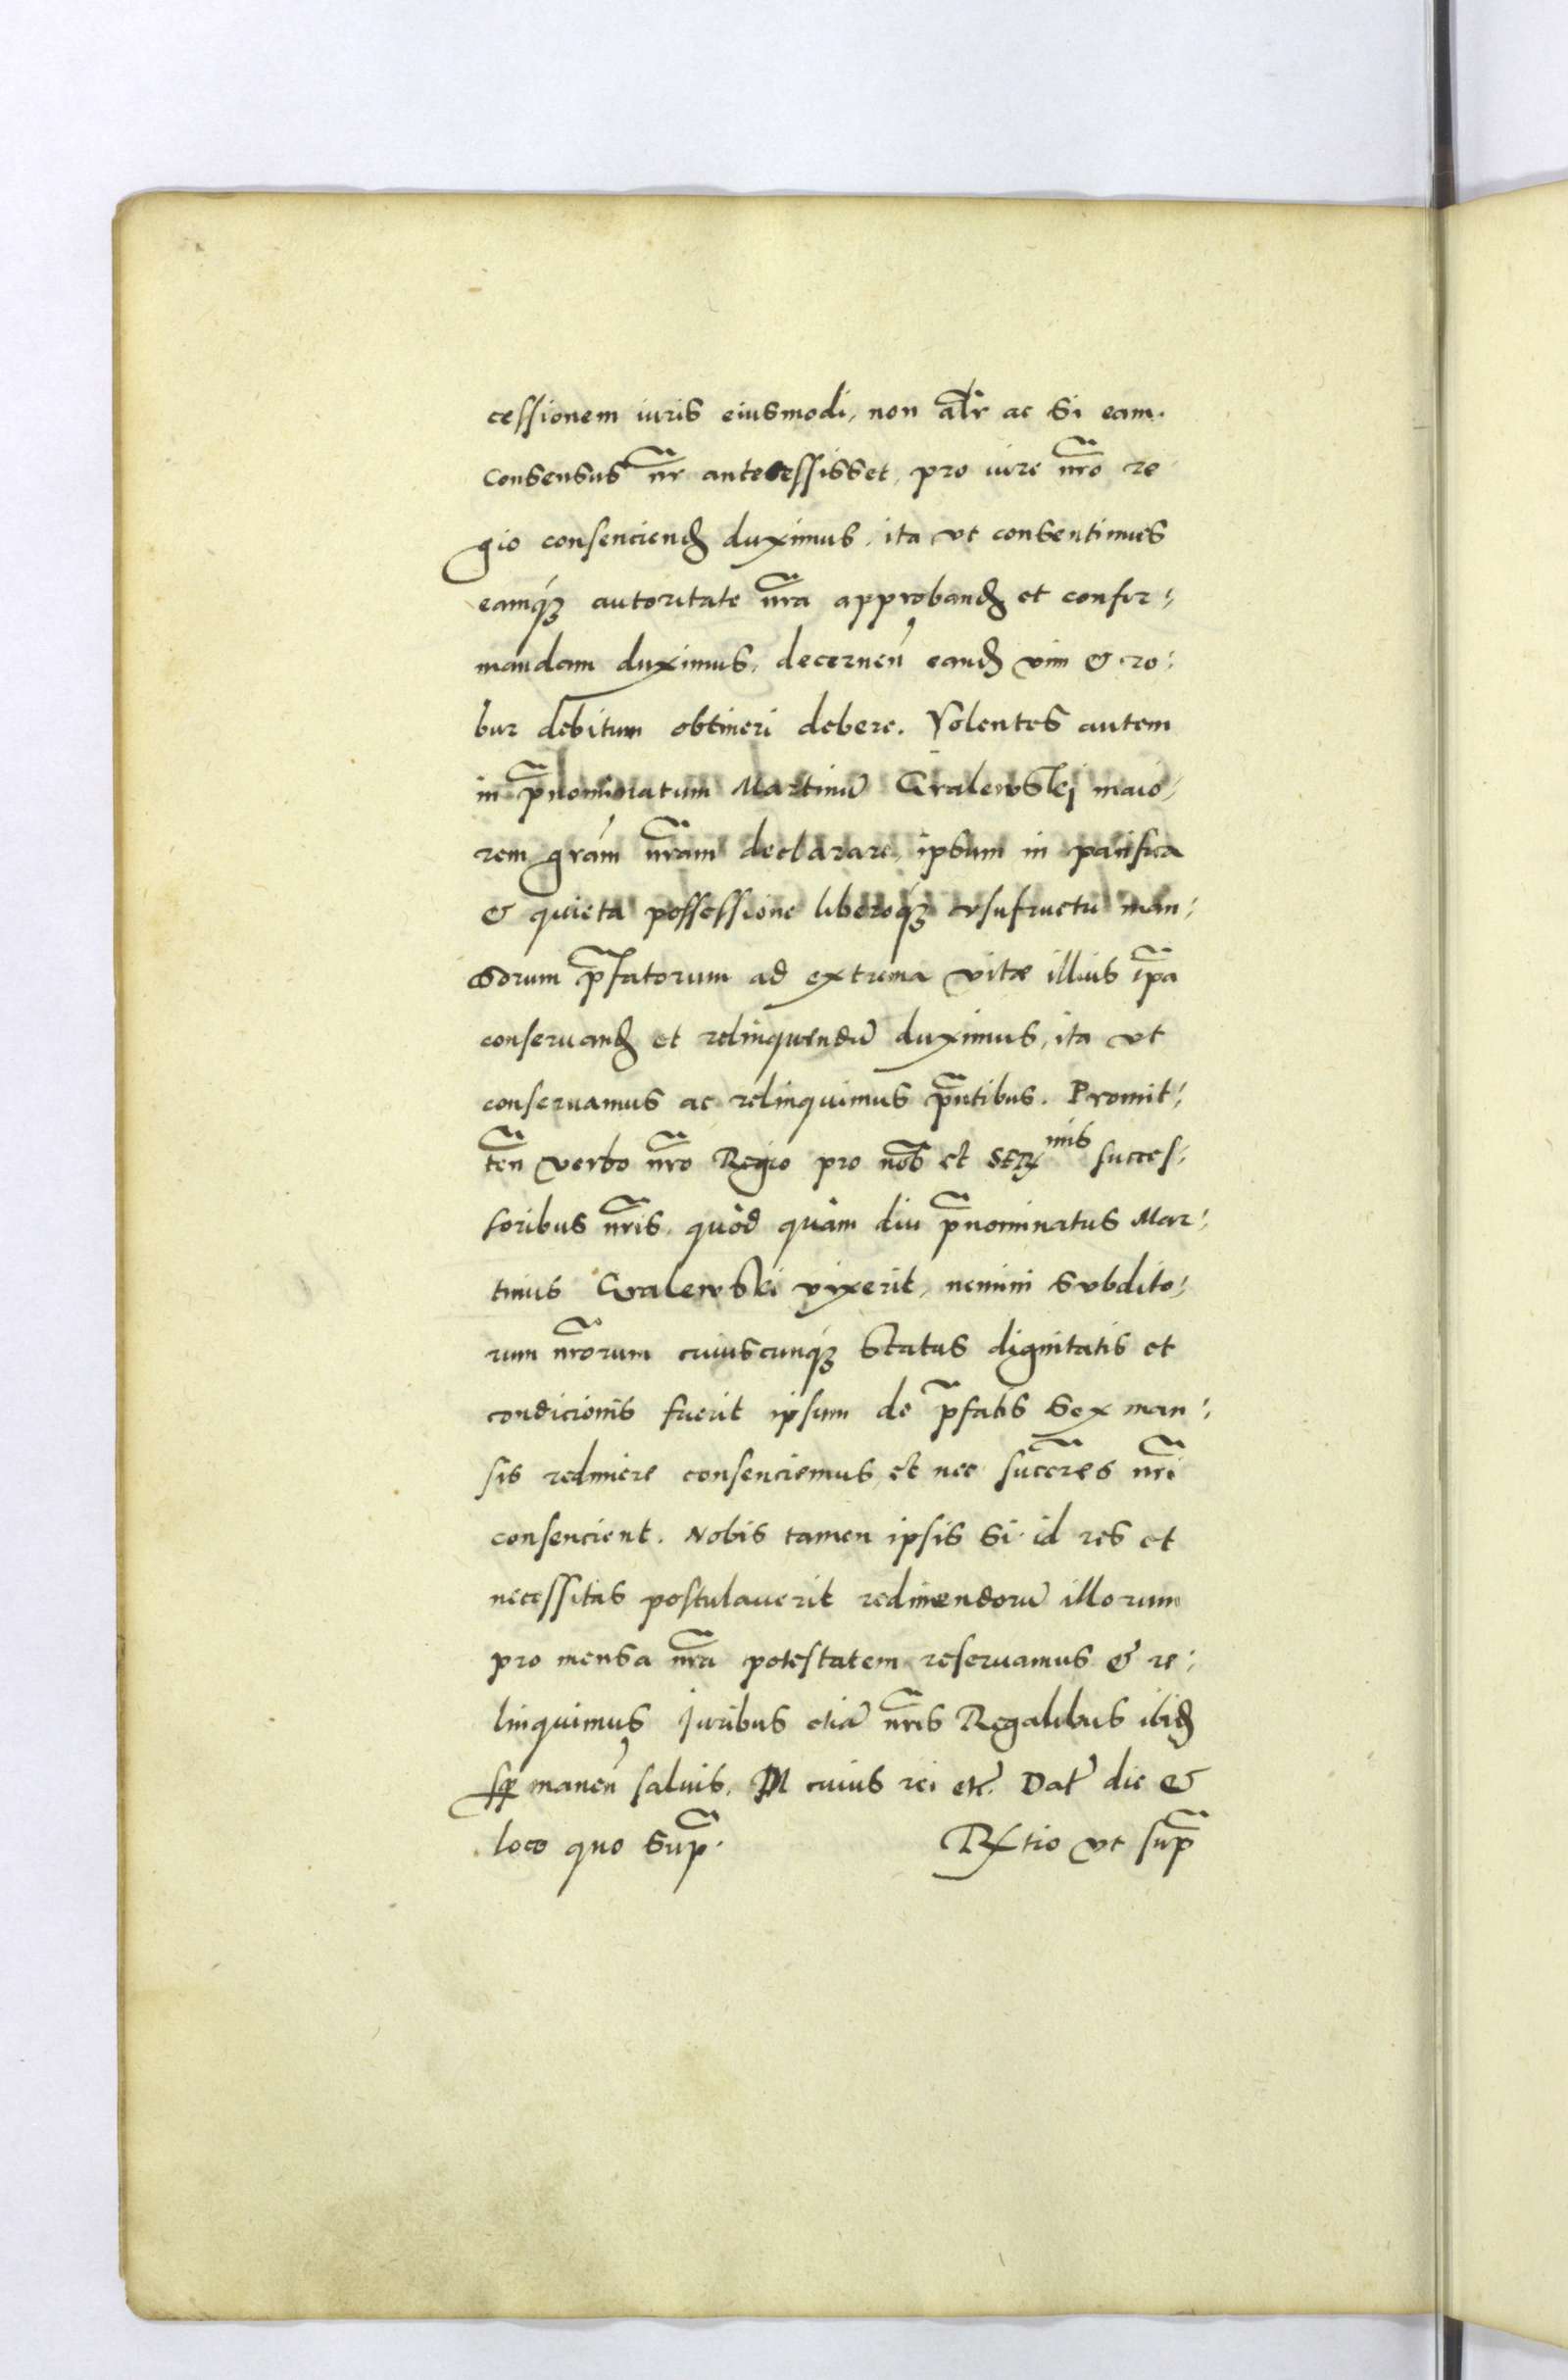 cessionem iuris eiusmodi, non alr̃ ac si eam.
consensus nr̃ antecessisset, pro iure nr̃o re
gio consenciend̃ duximus, ita vt consentimus
eamq́ʒ autoritate nr̃a approband̃ et confir:
mandam duximus, decernen̄ eand̃ vim & ro:
bur debitum obtineri debere. Volentes autem
in p̃nominatum Martinũ Gralewskj maio,
rem gra̅m nr̃am declarare, ipsum in pacifica
& quieta possessione liberoq́ʒ vsufructu man:
sorum p̃fatorum ad extrema vitæ illius ip̃a
conseruand̃ et relinquendũ duximus, ita vt
conseruamus ac relinquimus p̃ntibus. Promit:
teñ verbo nr̃o Regio pro nob̃ et Ser^mis succes:
soribus nr̃is, quòd quàm diu p̃nominatus Mar:
tinus Gralewski vixerit, nemini subdito:
rum nr̃orum cuiuscunq́ʒ status dignitatis et
condicionis fuerit ipsum de p̃fatis sex man:
sis redimere consenciemus, et nec succr̃es nr̃i
consencient. Nobis tamen ipsis si id res et
necessitas postulauerit redimendorũ illorum
pro mensa nr̃a potestatem reseruamus & re:
linquimus, Juribus etiã nr̃is Regalibus ibid̃
sp̃ manen̄ saluis. In cuius rei etc̃. Dat̃ die &
loco quo sup̃. Rx̃tio vt sup̃